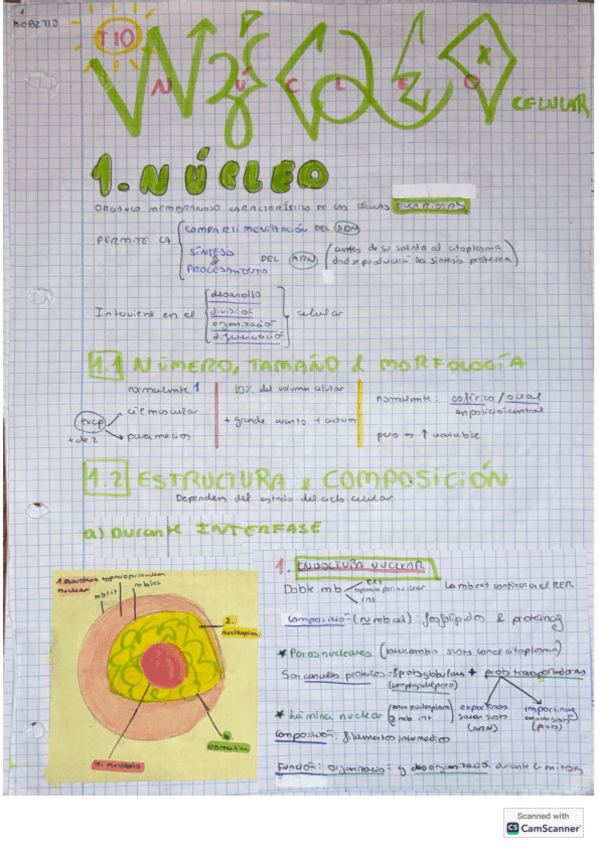 T10
NÚCLEO
CELULAR
1. NÚCLEO
ORGÁNULO MEMBRANOSO CARACTERÍSTICO DE LAS CÉLULAS EUCARIOTAS
PERMITE LA
COMPARTIMENTACIÓN DEL ADN
SÍNTESIS
&
DEL ARN
(antes de su salida al citoplasma
Interviene en el
desarrollo
división
organizació
celular
1.1 NÚMERO, TAMAÑO & MORFOLOGÍA
normalmente 1
excp
+ de 2
paramecios
10% del volumen celular
+ grande cuanto + activo
normalmente: esférico/oval
en posición central
pero ⇒ ↑ variable
1.2 ESTRUCTURA & COMPOSICIÓN
Dependen del estado del ciclo celular
a) DURANTE INTERFASE
1. Envoltura
nuclear
espacio perinuclear
mb ext
mb int
2.
nucleoplasma
3.
cromatina
4. nucléolo
1. ENVOLTURA NUCLEAR
Doble mb
ext
espacio perinuclear
int
La mb ext continua a el RER
Composició: (= mb cel): fosfolípidos & proteínas
* Poros nucleares (intercambio susts con el citoplasma)
Son canales proteicos = 8 prots globulares + prots transportadoras
(complejo del poro)
* Lámina nuclear
(entre nucleoplasma
& mb int)
exportinas
sacan susts
(ARN)
importinas
(prots)
Composición: filamentos intermedios
Función: organizació y desorganizació durante la mitosis
Scanned with
CS CamScanner